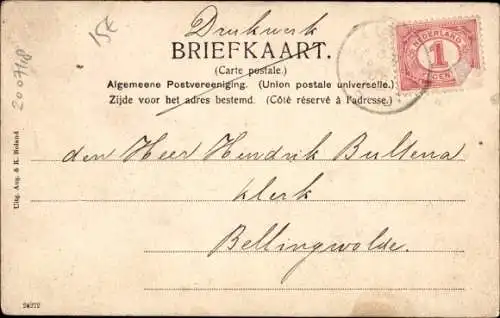 Drukwerk
15€
BRIEFKAART.
(Carte postale.)
Algemeene Postvereeniging. (Union postale universelle.)
Zijde voor het adres bestemd. (Côté réservé à l'adresse.)
NEDERLAND
1
CEN
den Heer Hendrik Bultena
klerk
Bellingwolde.
Uitg. Aug. & K. Roland